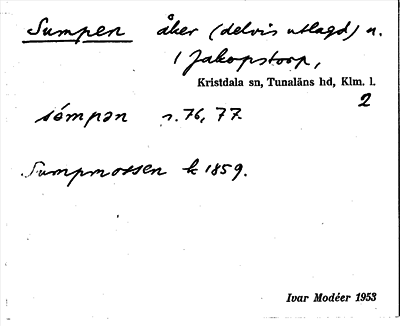 Sumpen åker (delvis utlagd) n.
1 Jakopstorp,
Kristdala sn, Tunaläns hd, Klm. l.
2
sémpən r. 76, 77
Sumpmossen k 1859.
Ivar Modéer 1953